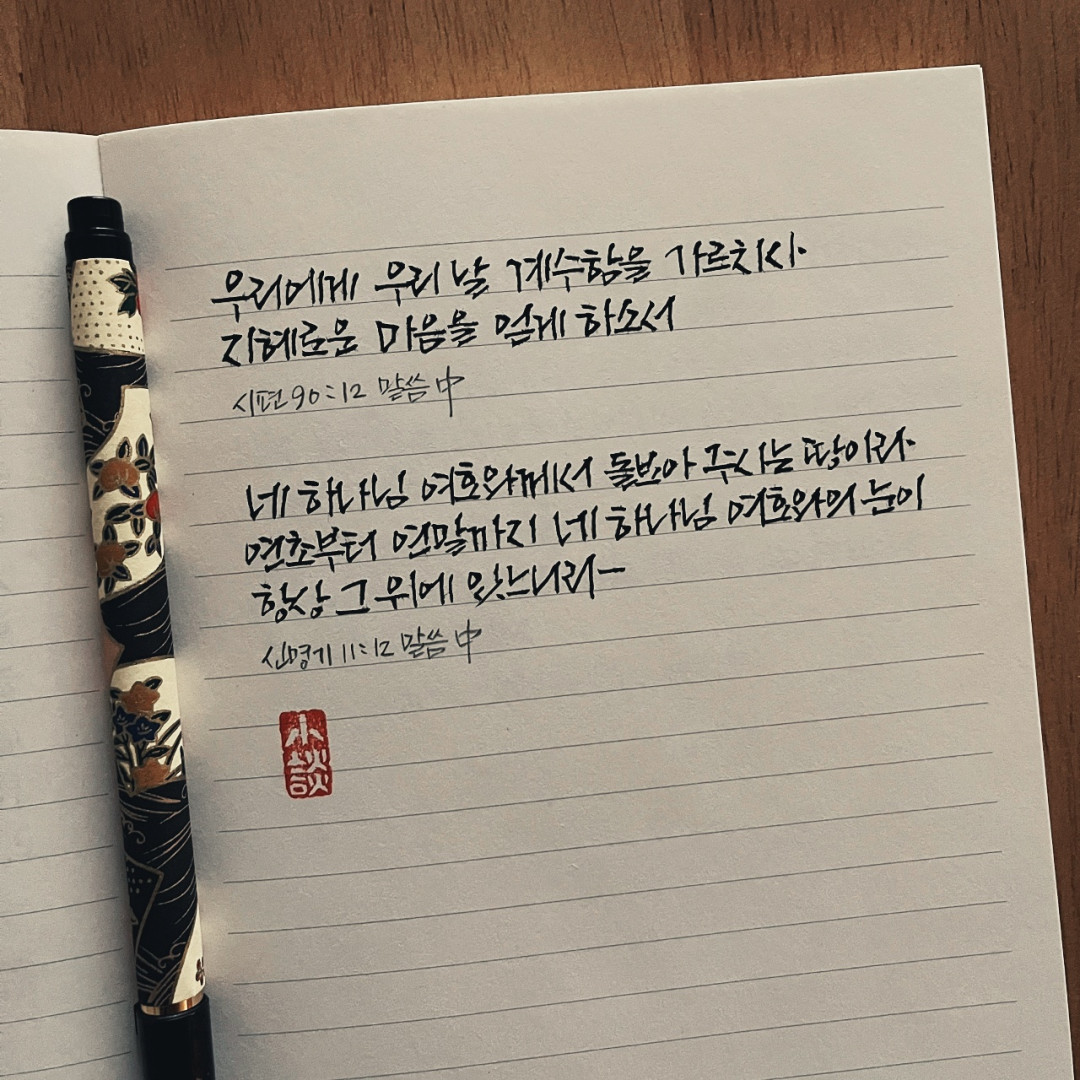 우리에게 우리 날 계수함을 가르치사
지혜로운 마음을 얻게 하소서
시편 90:12 말씀 中
네 하나님 여호와께서 돌보아 주시는 땅이라
연초부터 연말까지 네 하나님 여호와의 눈이
항상 그 위에 있느니라-
신명기 11:12 말씀 中
小
談